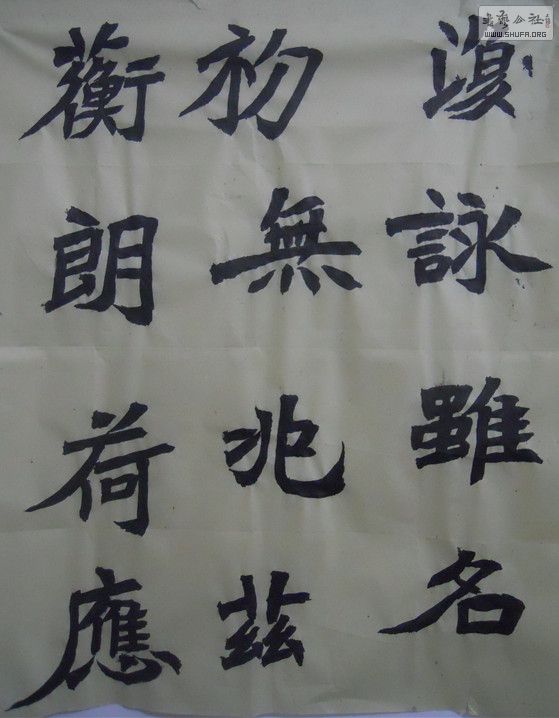 書藝公社
WWW.SHUFA.ORG
詠雖名
初無兆茲
蘅朗荷應